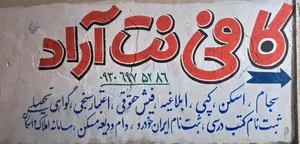 کافی نت آراد
۰۹۳۰ ۶۹۷ ۵۲ ۸۶
سجام، اسکن، کپی، ابلاغیه، فیش حقوقی، اعتبارسنجی، گواهی تحصیلی
ثبت نام کتب درسی، ثبت نام ایران خودرو، وام ودیعه مسکن، سامانه املاک و اسکان